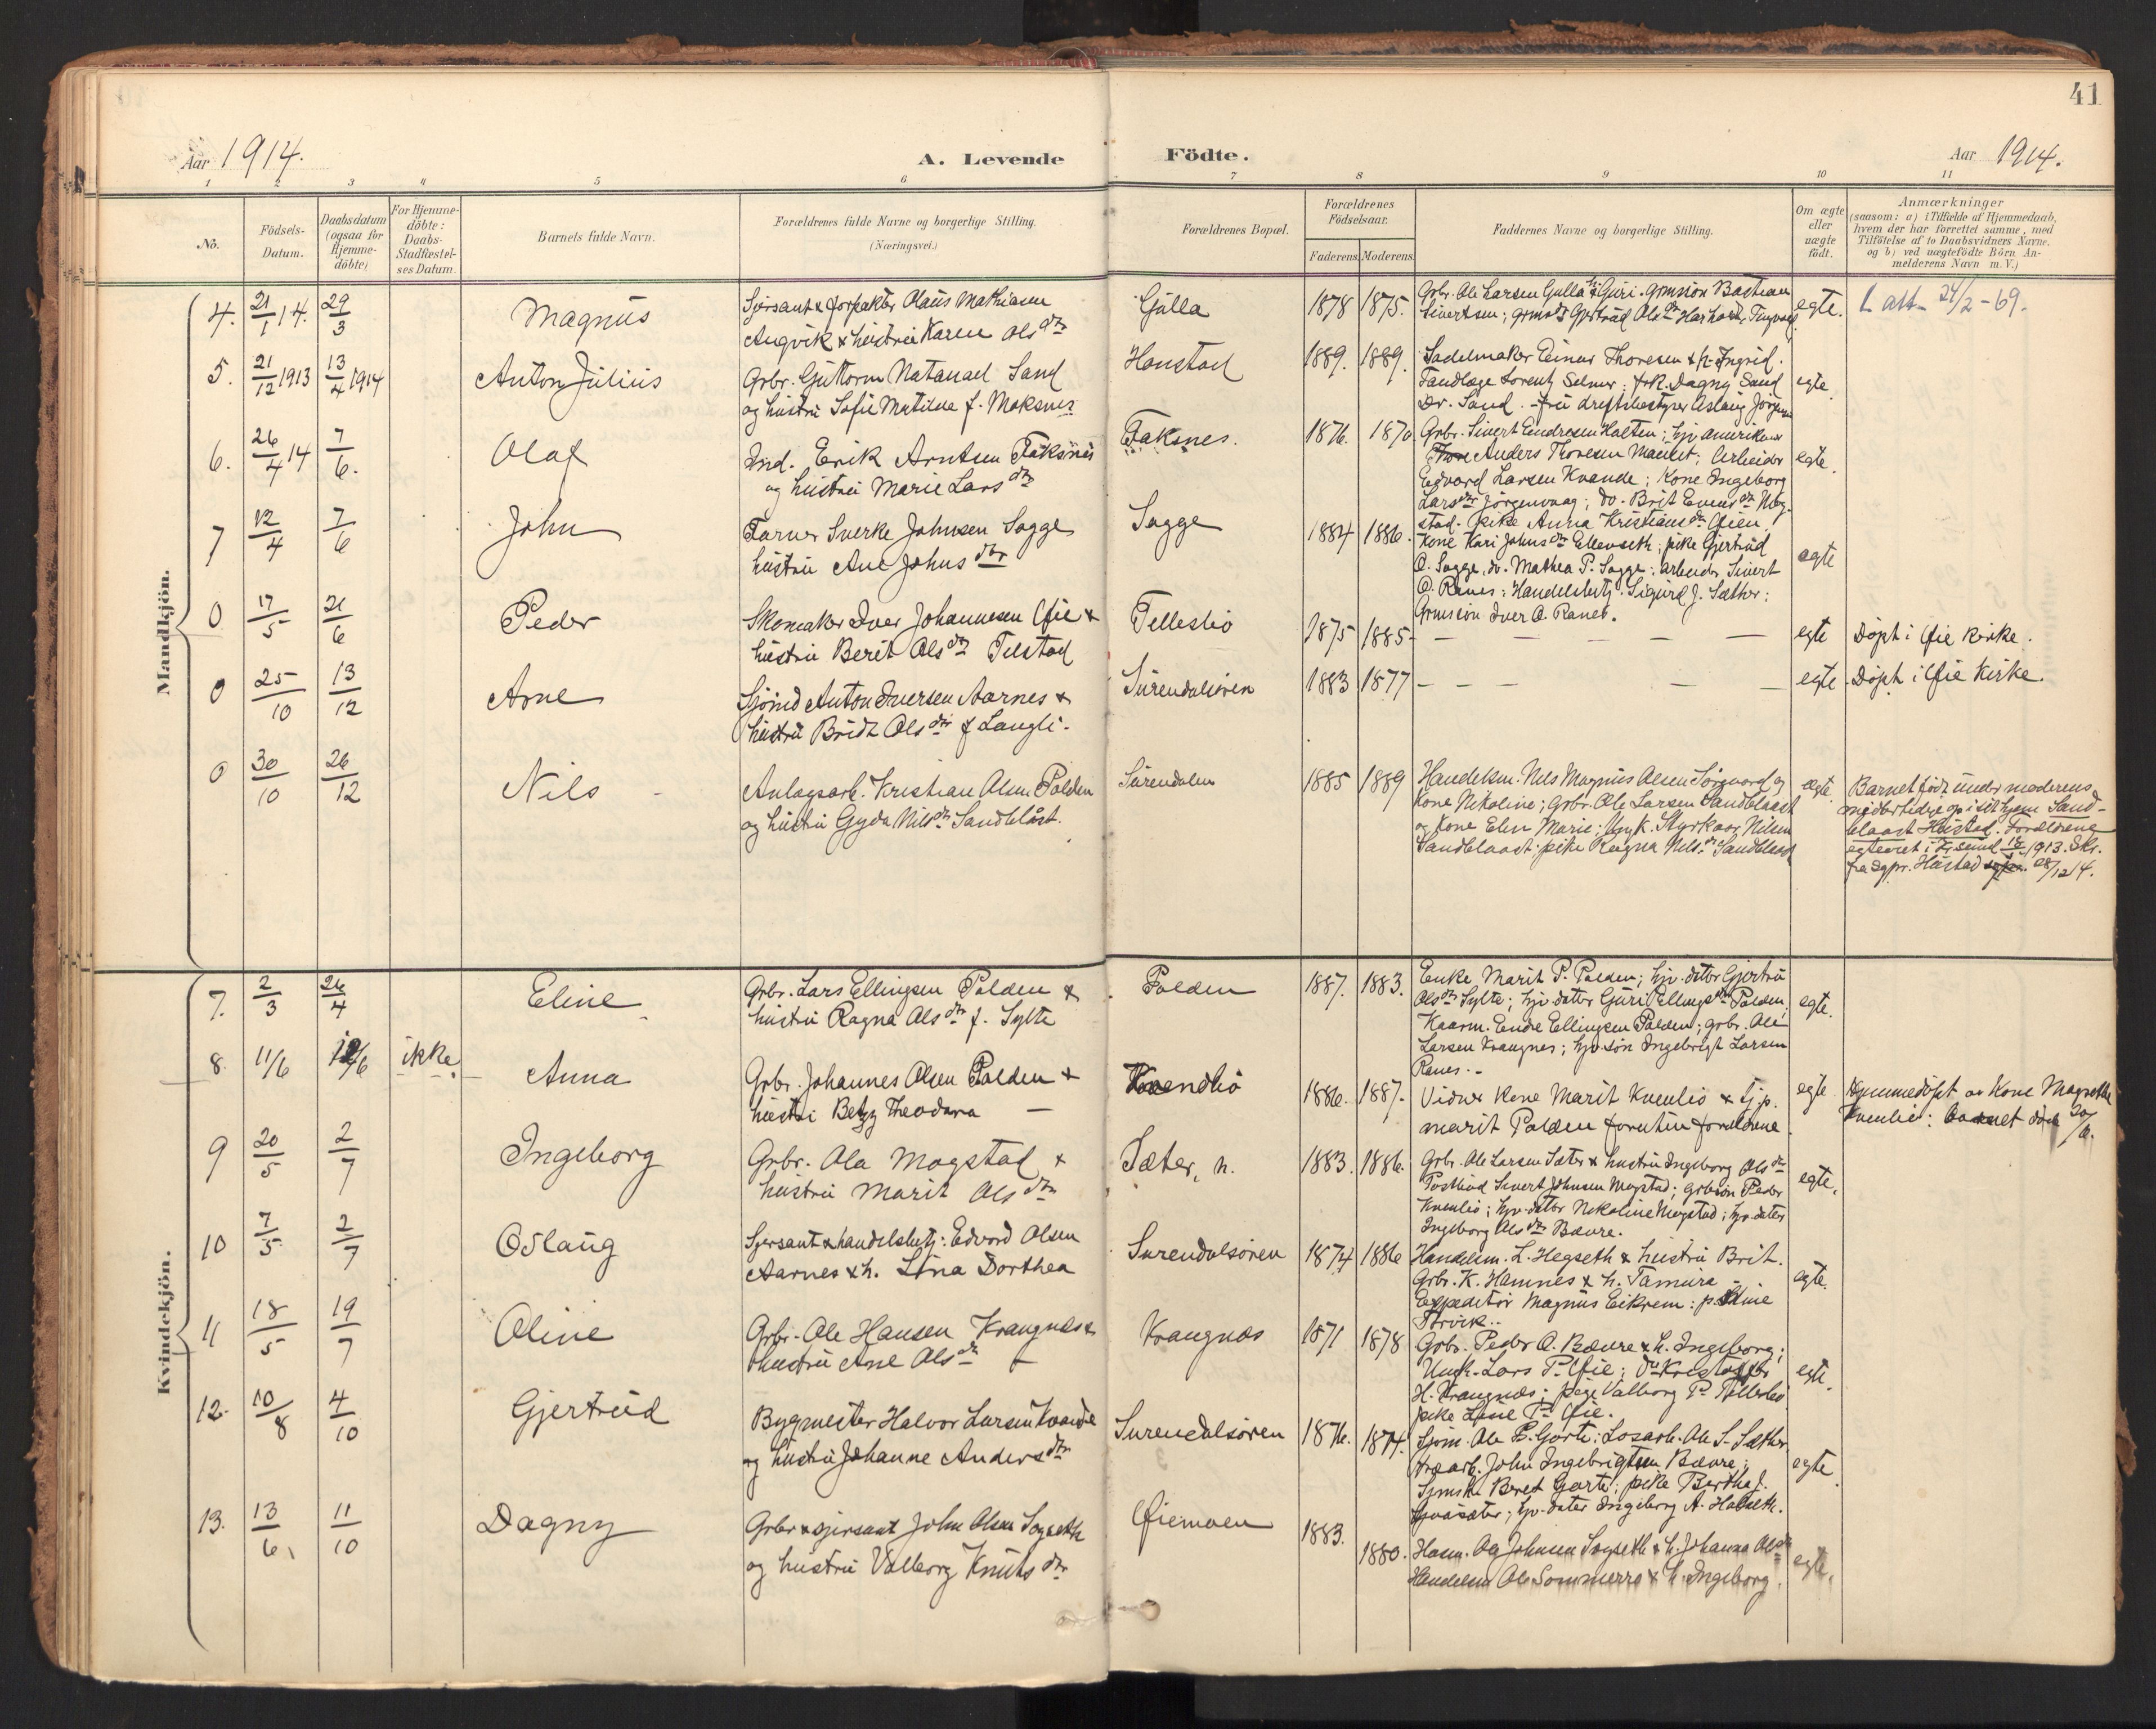 41
Aar 1914.
A. Levende
Födte.
Aar 1914.
1 2 3 4 5 6 7 8 9 10 11
No.
Födsels-
Datum.
Daabsdatum
(ogsaa for
Hjemme-
döbte)
For Hjemme-
döbte:
Daabs-
Stadfæstel-
ses Datum.
Barnets fulde Navn.
Forældrenes fulde Navne og borgerlige Stilling.
(Næringsvei.)
Forældrenes Bopæl.
Forældrenes
Födselsaar.
Faderens. Moderens.
Faddernes Navne og borgerlige Stilling.
Om ægte
eller
uægte
födt.
Anmærkninger
(saasom: a) i Tilfælde af Hjemmedaab,
hvem der har forrettet samme, med
Tilföielse af to Daabsvidners Navne,
og b) ved uægtefödte Börn An-
melderens Navn m. V.)
Mandkjön.
4. 21/1 14. 29/3 Magnus
Sjersant & forpakter Olaus Mathiasen
Angvik & hustru Karen Olsdtr
Gulla 1878 1875.
Grbr. Ole Larsen Gulla & Guri. Grmssön Bastian
Sivertsen;
egte. L. att. 24/2-69.
5. 21/12 1913 13/4 1914 Anton Julius
Grbr. Guttorm Natanael Sand
og hustru Sofie Matilde f. Moksnes
Honstad 1889. 1889.
Sadelmaker Einar Thoresen & h. Ingrid.
Tandlæge Lorentz Selmer; frk. Dagny Sand
Dr. Sand. - fru driftsbestyrer Aslaug
egte.
6. 26/4 14 7/6. Olaf
Ind. Erik Arntsen Faksnes
og hustru Marie Larsdtr
Faksnes. 1876. 1870
Grbr. Sivert Endresen Halten;
Anders Thoresen; Arbeider
Edvard Larsen Kvande; Kone Ingeborg
Larsdtr Jørgenvaag; do. Brit Einarsdtr Mog-
stad. pike Anna Kristiansdtr Øien.
egte.
7 12/4 7/6 John
Farver Sverke Johnsen Sogge
hustru Ane Johnsdtr
Sogge 1884 1886.
Kone Kari Johnsdtr Ellevseth; pike Gjertrud
O. Sogge, do. Mathea P. Sogge; arbeider Sivert
O. Ranes; Handelsbetj. Sigurd J. Sæther;
Grmssön Iver O. Ranes.
egte
0 17/5 21/6 Peder
Skomaker Iver Johannesen Øie &
hustru Berit Olsdtr Telstad
Telleslió 1875 1885 — — — — —
egte Döpt i Øie Kirke.
0 25/10 13/12 Arne
Sjömd Anton Iversen Aarnes &
hustru Bridt Olsdtr f Langli.
Surendalsören 1883 1877 — — — — —
egte. Döpt i Øie Kirke.
0 30/10 26/12 Nils
Anlægsarb. Kristian Olsen Polden
og hustru Gyda Nilsdtr Sandblåst.
Surendalen 1885 1889
Handelsm. Nils Magnus Olsen Sörgaard og
Kone Nikoline; Grbr. Ole Larsen Sandblaast
og Kone Elen Marie; Ungk. Styrkaar Nilsen
Sandblaast; pike Ragna Nilsdtr Sandblaast
egte.
Barnet född under moderens
midlertidige op. i sit hjem Sand-
blaast Hustad. Forældrene
egteviet i Kr.sund 1913. Skr.
fra sgpr. Hustad 28/12 14.
Kvindekjön.
7. 2/3 26/4 Eline
Grbr. Lars Ellingsen Polden &
hustru Ragna Olsdtr f. Sylte
Polden 1887. 1883.
Enke Marit P. Polden; hjv. datter Gjertru
Olsdtr Sylte; hjv. datter Guri Ellingsdtr Polden,
Kaarm. Endre Ellingsen Polden; grbr. Ole
Larsen Krangnes; hjv. sön Ingebrigt Larsen
Ranes.-
egte.
8. 11/6 12/6 ikke. Anna
Grbr. Johannes Olsen Polden &
hustru Betzy Theodora —
Kvendlió 1886. 1887.
Vidner Kone Marit Kvenlió & Gj.p.
Marit Polden foruten foreldrene.
egte
Hjemmedöpt av Kone Magnhild
Kvenlió: barnet död 20/6.
9 20/5 2/7 Ingeborg
Grbr. Ola Mogstad &
hustru Marit Olsdtr
Sæter, n. 1883. 1886.
Grbr. Ole Larsen Sæter & hustru Ingeborg Olsdtr
Postbud Sivert Johnsen Mogstad; grbrsön Peder
Kvenlió; hjv. datter Nikoline Mogstad; hjv. datter
Ingeborg Olsdtr Bævre.
egte.
10 7/5 2/7 Oslaug
Sjersant & handelsbetj: Edvard Olsen
Aarnes & h. Lina Dorthea
Surendalsören 1874 1886
Handelsm. L. Hegseth & hustru Brit.
Grbr. K. Hamnes & h. Tamina
Expeditör Magnus Eikrem: p. Eline
Torvik..
egte.
11 18/5 19/7 Oline
Grbr. Ole Hansen Krangnæs &
hustru Ane Olsdtr —
Krangnæs 1871 1878
Grbr. Peder O. Bævre & h. Ingeborg;
Ungk. Lars P. Øie; do Kristoffer
H. Krangnæs; pige Valborg Pdtr Tellesbö
pike Lina Pdtr Øie.
egte.
12. 10/8 4/10 Gjertrud
Bygmester Halvor Larsen Kvande
og hustru Johanne Andersdtr
Surendalsören 1876. 1874.
Sjöm. Ole B. Garte; Losarb. Ole S. Sæther
Træarb. John Ingebrigtsen Bævre;
Sjmsk. Beret Garte; pike Bertha J.
; hjv. dater Ingeborg A. Halseth.
egte
13. 13/6, 11/10 Dagny
Grbr & sjersant John Olsen Sogseth
og hustru Valborg Knutsdtr
Øiemoen 1883. 1880.
Husm. Ole Johnsen Sogseth & h. Johanna Olsdtr
Handelsm Ole Sommerro & h. Ingeborg.
egte.